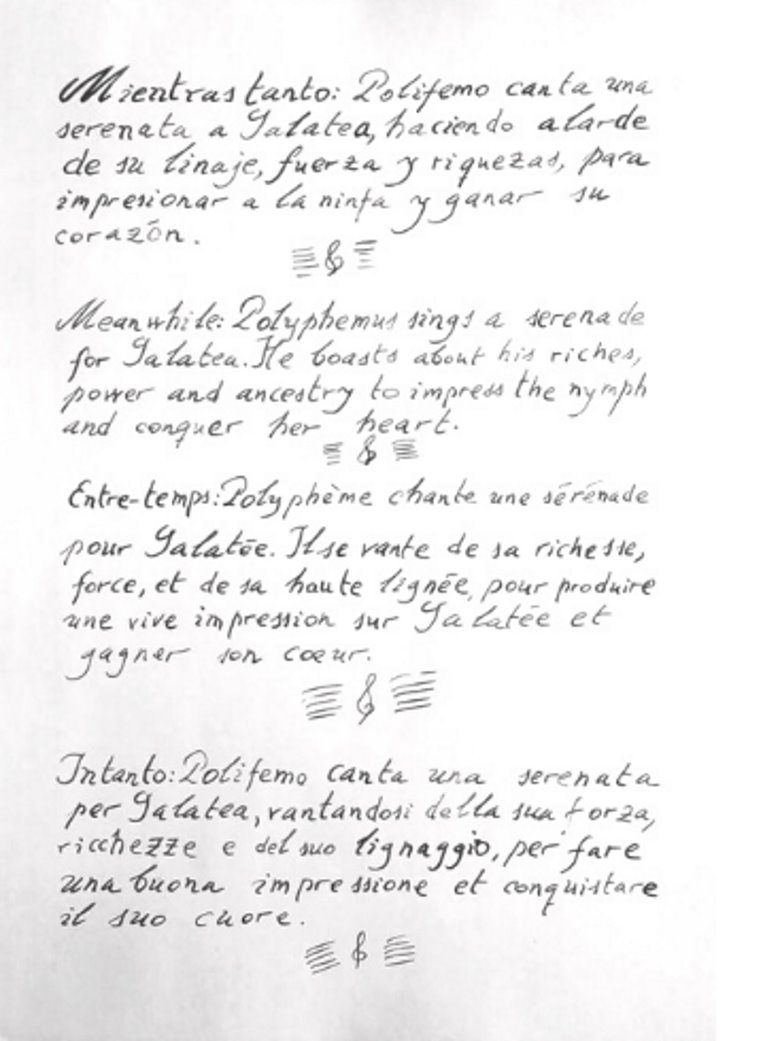 Mientras tanto: Polifemo canta una
serenata a Galatea, haciendo alarde
de su linaje, fuerza y riquezas, para
impresionar a la ninfa y ganar su
corazón.
Meanwhile: Polyphemus sings a serenade
for Galatea. He boasts about his riches,
power and ancestry to impress the nymph
and conquer her heart.
Entre-temps: Polyphème chante une sérénade
pour Galatée. Il se vante de sa richesse,
force, et de sa haute lignée, pour produire
une vive impression sur Galatée et
gagner son cœur.
Intanto: Polifemo canta una serenata
per Galatea, vantandosi della sua forza,
ricchezze e del suo lignaggio, per fare
una buona impressione et conquistare
il suo cuore.